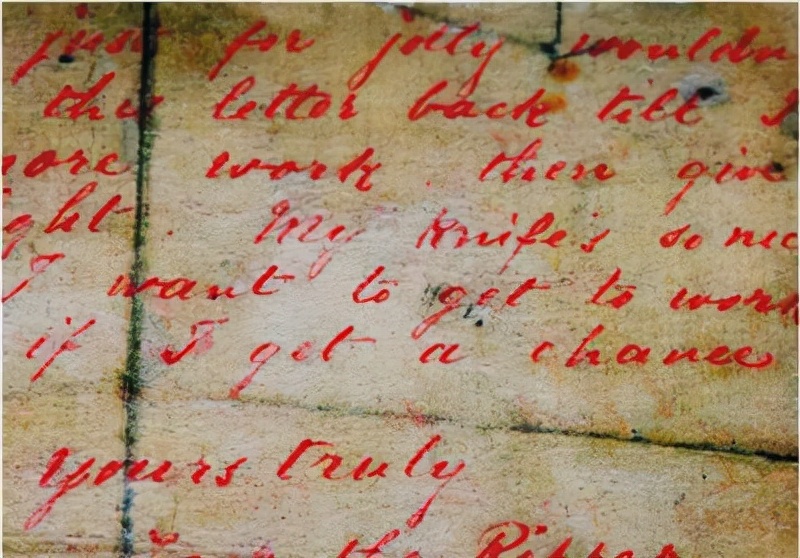 just for jolly wouldn
this letter back till I
more work. then give
ght. My knife's so nic
I want to get to work
if I get a chance
yours truly
the Ripper